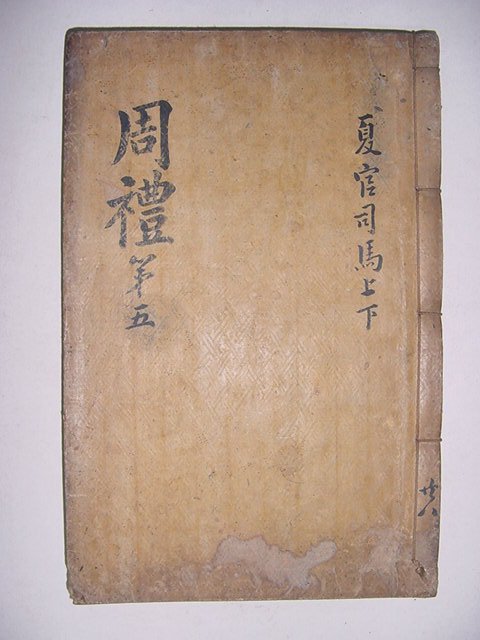 周禮 第五
夏官司馬上下
廿八